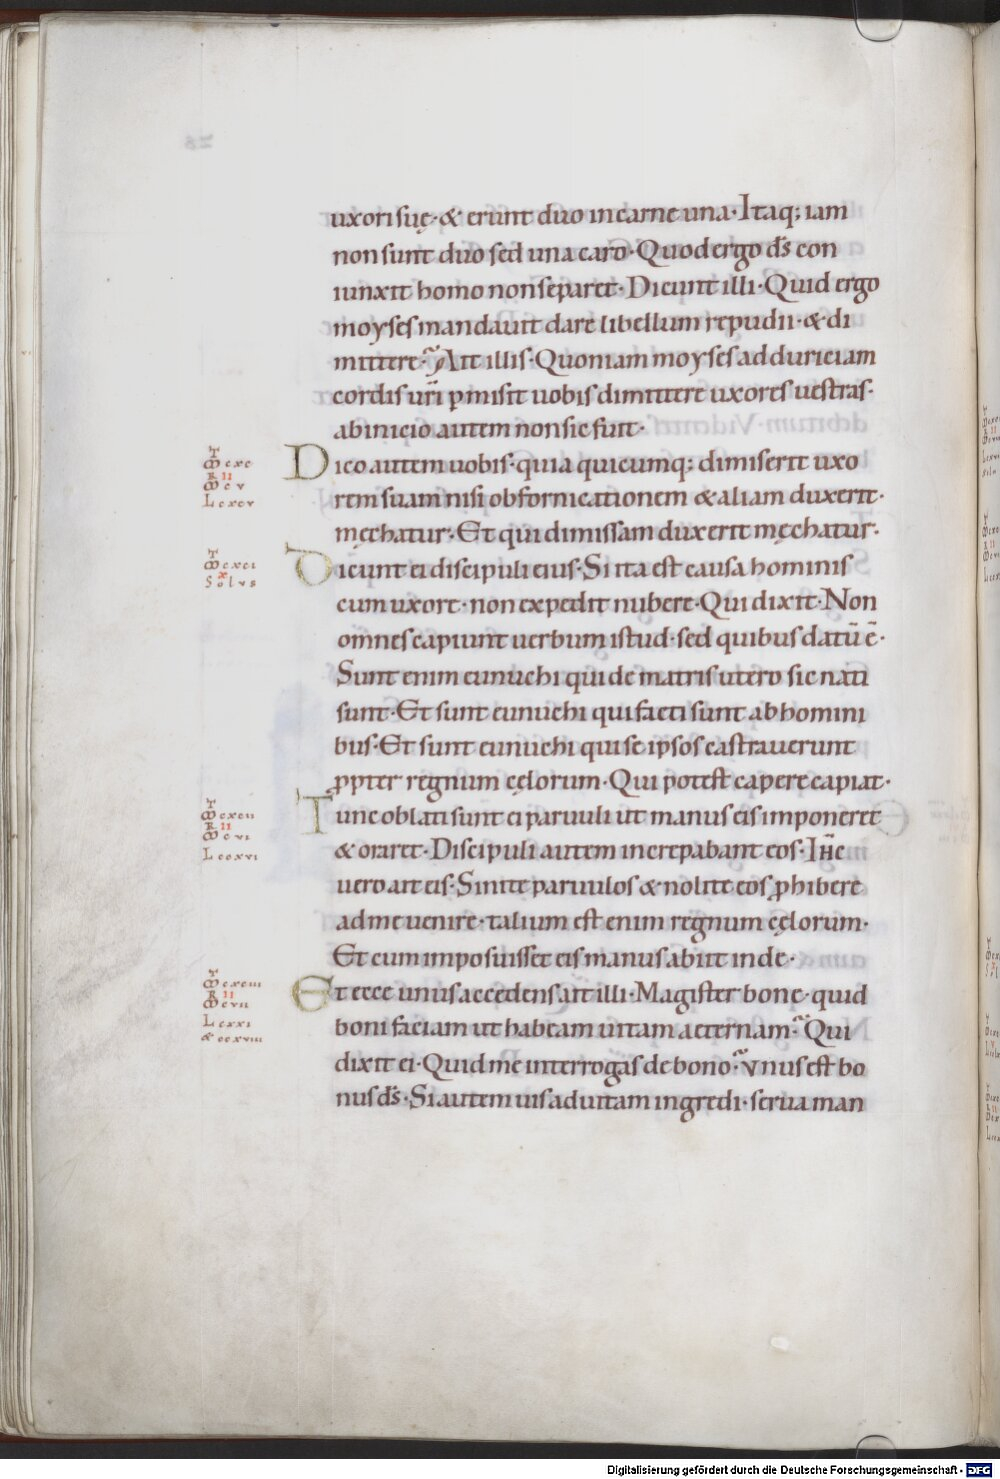 uxori suę· & erunt duo in carne una· Itaq; iam
non sunt duo sed una caro· Quod ergo d̅s con
iunxit homo non separet· Dicunt illi· Quid ergo
moyses mandauit dare libellum repudii· & di
mittere· Ait illis· Quoniam moyses ad duriciam
cordis uri̅ p̱misit uobis dimittere uxores uestras·
ab inicio autem non sic fuit·
Dico autem uobis· quia quicumq; dimiserit uxo
rem suam nisi ob fornicationem & aliam duxerit·
męchatur· Et qui dimissam duxerit męchatur·
Dicunt ei discipuli eius· Si ita est causa hominis
cum uxore· non expedit nubere· Qui dixit· Non
omnes capiunt uerbum istud· sed quibus datu̅ e̅·
Sunt enim eunuchi qui de matris utero sic nati
sunt· Et sunt eunuchi qui facti sunt ab homini
bus· Et sunt eunuchi qui se ipsos castrauerunt
ꝓpter regnum cęlorum· Qui potest capere capiat·
Tunc oblati sunt ei paruuli ut manus eis imponeret
& oraret· Discipuli autem increpabant eos· Ih̅c
uero ait eis· Sinite paruulos & nolite eos ꝓhibere
ad me uenire· talium est enim regnum cęlorum·
Et cum imposuisset eis manus abiit inde·
Et ecce unus accedens ait illi· Magister bone· quid
boni faciam ut habeam uitam aeternam· Qui
dixit ei· Quid me interrogas de bono· vnus est bo
nus d̅s· Si autem uis ad uitam ingredi· serua man
Digitalisierung gefördert durch die Deutsche Forschungsgemeinschaft - DFG